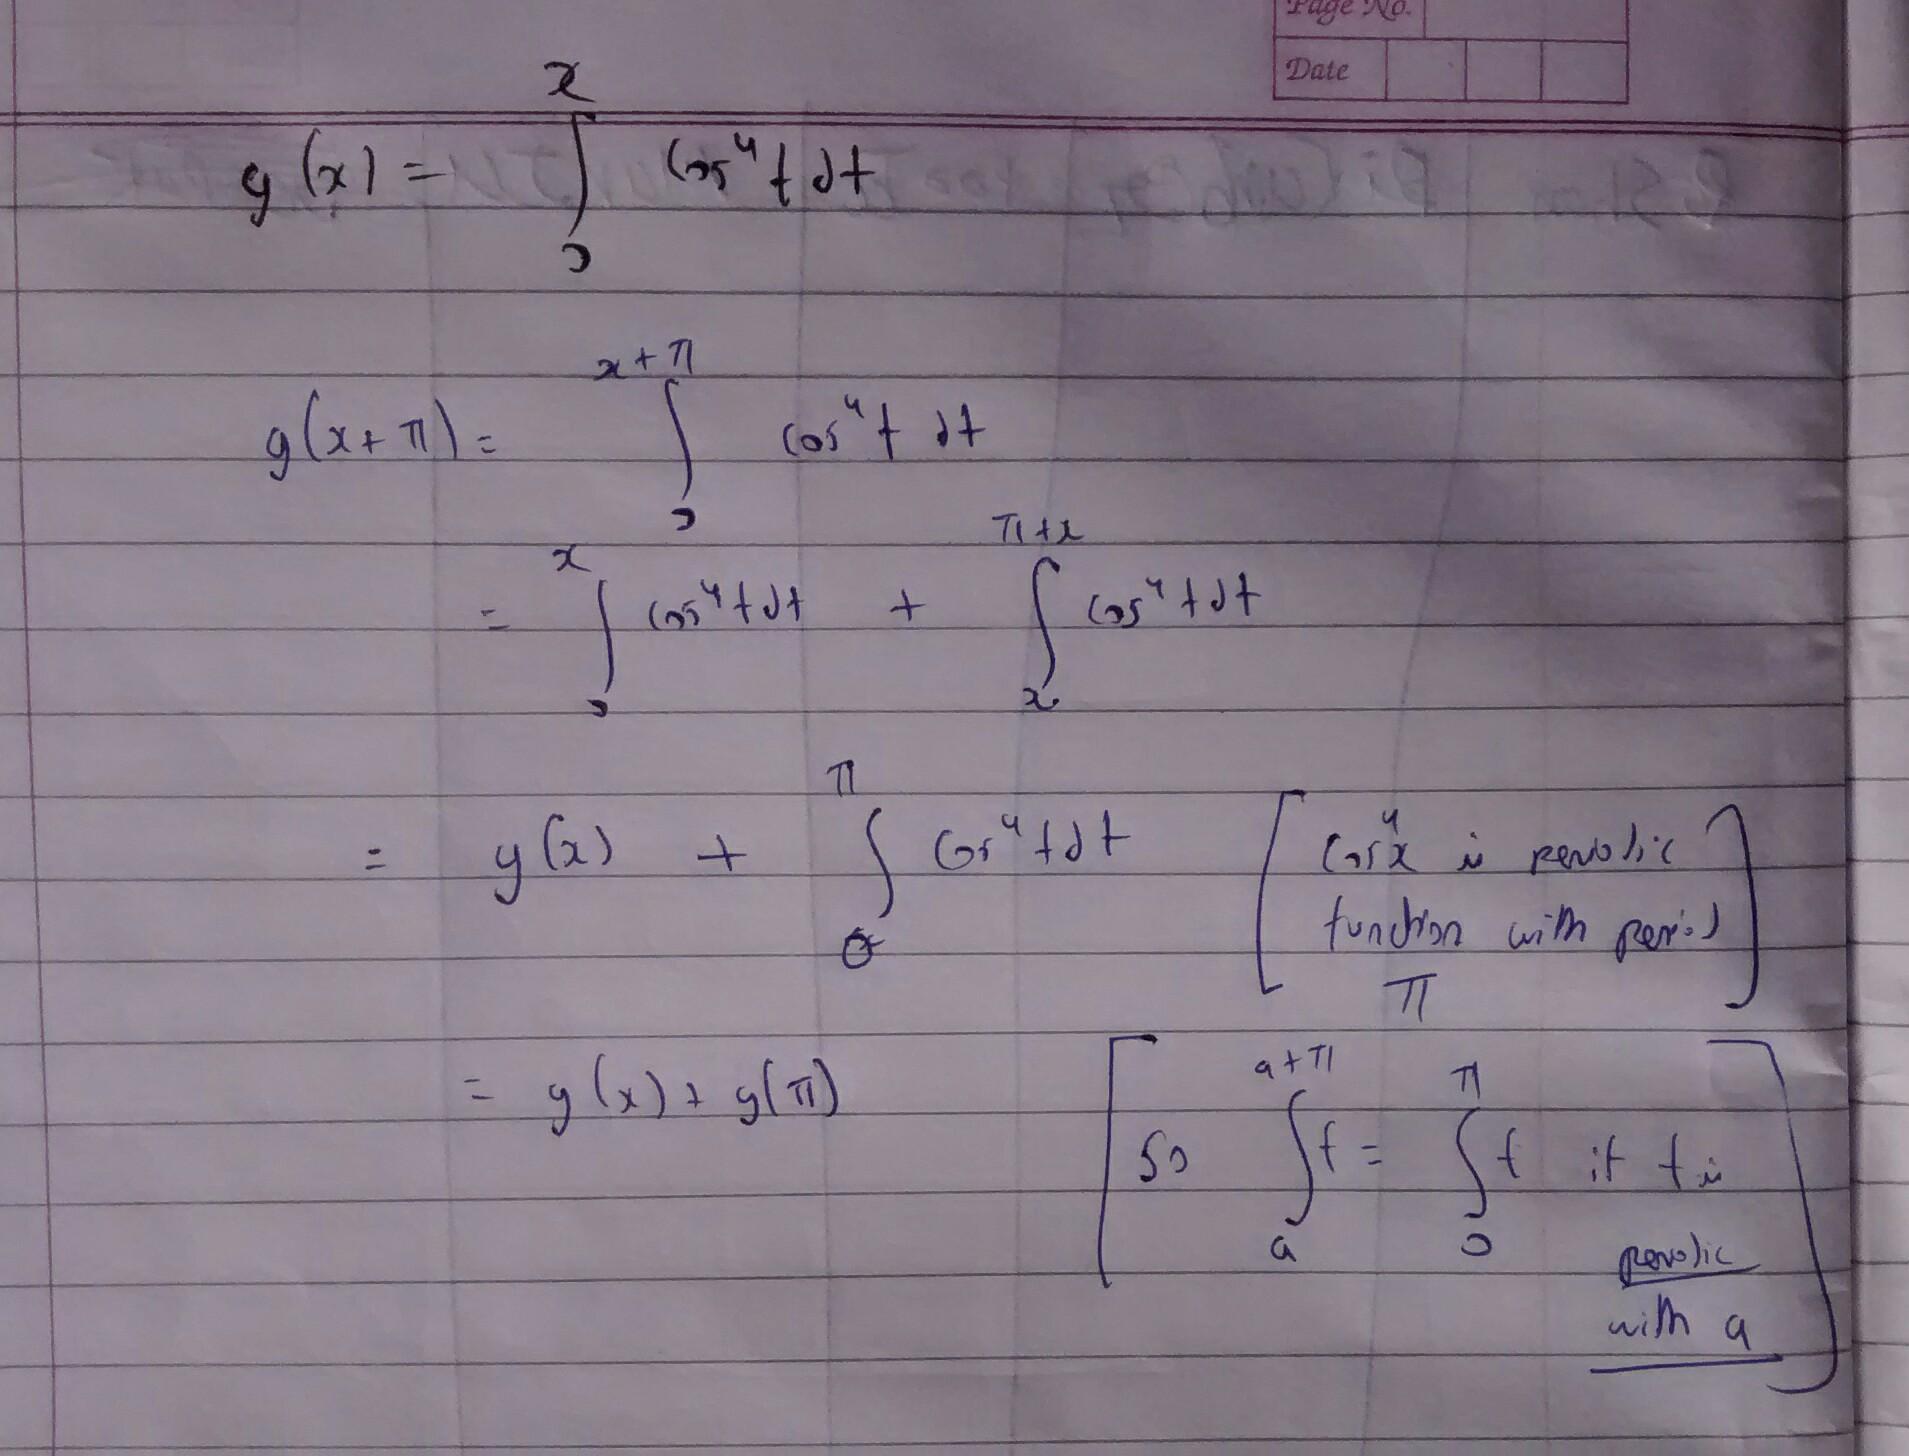 Page No.
Date
g(x) = ∫₀ˣ cos⁴t dt
g(x+π) = ∫₀ˣ⁺π cos⁴t dt
= ∫₀ˣ cos⁴t dt + ∫ₓπ⁺ˣ cos⁴t dt
= g(x) + ∫₀π cos⁴t dt [cos⁴x is periodic
function with period
π]
= g(x) + g(π) [so ∫ₐᵃ⁺π f = ∫₀π f if f is
periodic
with a]